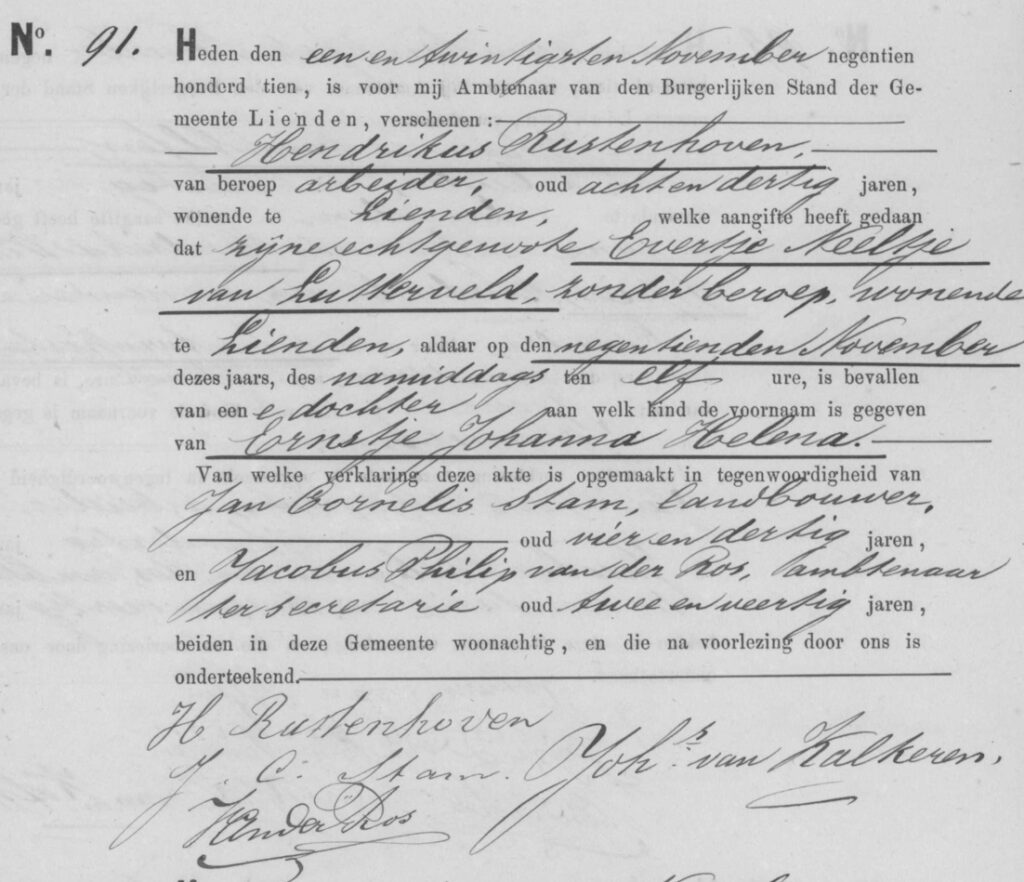 No. 91. Heden den een en twintigsten November negentien
honderd tien, is voor mij Ambtenaar van den Burgerlijken Stand der Ge-
meente Lienden, verschenen:
Hendrikus Rustenhoven,
van beroep arbeider, oud acht en dertig jaren,
wonende te Lienden, welke aangifte heeft gedaan
dat zijne echtgenoote Evertje Neeltje
van Lutterveld, zonder beroep, wonende
te Lienden, aldaar op den negentienden November
dezes jaars, des namiddags ten elf ure, is bevallen
van een e dochter aan welk kind de voornaam is gegeven
van Ernstje Johanna Helena.
Van welke verklaring deze akte is opgemaakt in tegenwoordigheid van
Jan Cornelis Stam, landbouwer,
oud vier en dertig jaren,
en Jacobus Philip van der Ros, ambtenaar
ter secretarie oud twee en veertig jaren,
beiden in deze Gemeente woonachtig, en die na voorlezing door ons is
onderteekend.
H Rustenhoven
J. C. Stam. Johs. van Kalkeren.
van der Ros